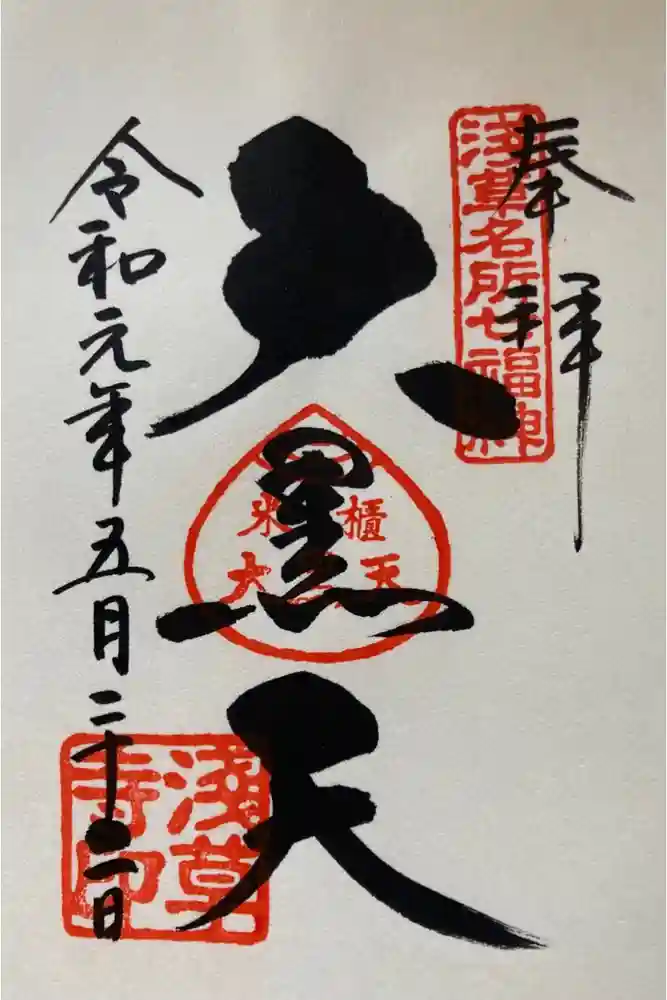 奉拝
淺草名所七福神
大黒天
米櫃
大黒天
令和元年五月二十二日
淺草
寺印